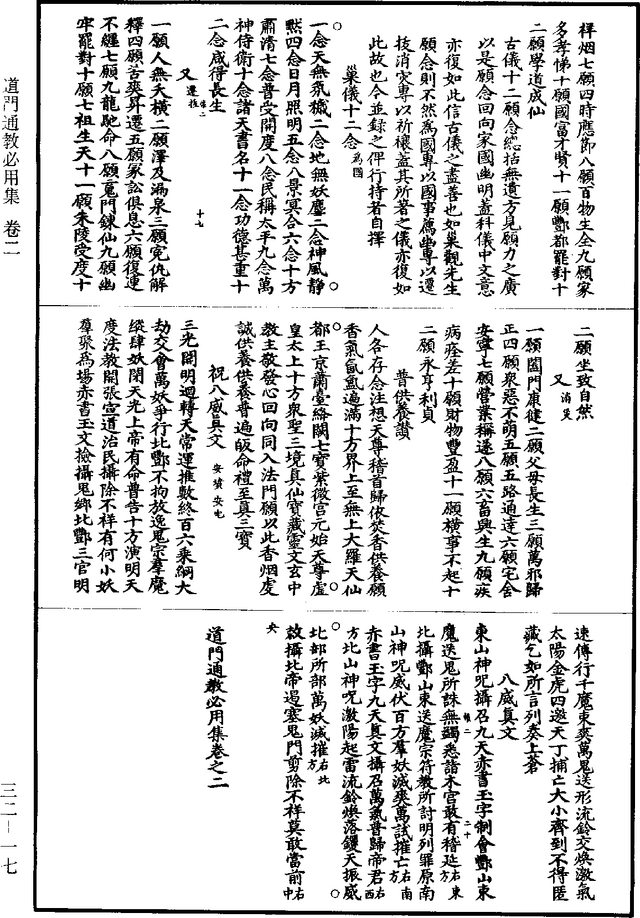 道門通教必用集 卷二
三二—一七
祥烟七願四時應節八願百物生全九願家
多孝悌十願國富才賢十一願酆都罷對十
二願學道成仙
古儀十二願念總括無遺方見願力之廣
以是願念回向家國幽明蓋科儀中文意
亦復如此信古儀之盡善也如巢觀先生
願念則不然為國專以國事薦幽專以還
拔消灾專以祈禳蓋其所著之儀亦復如
此故也今並録之俾行持者自擇
巢儀十二念為國
一念天無氛穢二念地無妖塵三念神風静
黙四念日月照明五念八景冥合六念十方
肅清七念普受開度八念民稱太平九念萬
神侍衛十念諸天書名十一念功德甚重十
二念咸得長生
又遷拔
十七
一願人無夭橫二願澤及漏泉三願寃仇解
釋四願苦爽昇遷五願冢訟俱息六願復連
不纏七願九龍馳命八願鬼門鍊仙九願幽
牢罷對十願七祖生天十一願朱陵受度十
二願坐致自然
又消灾
一願闔門康健二願父母長生三願萬邪歸
正四願衆惡不萌五願五路通達六願宅舍
安寧七願營業稱遂八願六畜興生九願疾
病痊差十願財物豐盈十一願橫事不起十
二願永亨利貞
普供養讚
人各存念注想天尊稽首歸依焚香供養願
香氣氤氲遍滿十方界上至無上大羅天仙
都玉京蕭臺絡闕七寶紫微宫元始天尊虚
皇太上十方衆聖三境真仙寶藏靈文玄中
教主敬發心回向同入法門願以此香烟處
誠供養供養普遍皈命禮至真三寶
祝八威真文安鎮安屯
三光開明迴轉天常運推數終百六乘綱大
劫交會萬妖爭行北酆不拘放逸鬼宗羣魔
縱肆妖閉天光上帝有命普告十方演明天
度法教開張宣道治民攝除不祥有何小妖
羣聚為場赤書玉文撿攝鬼鄉北酆三官明
速傳行千魔束爽萬鬼送形流鈴交煥激氣
太陽金虎四邀天丁捕亡大小齊到不得匿
藏乞如所言列奏上蒼
八威真文
東山神呪攝召九天赤書玉字制會酆山東
魔送鬼所誅無蠲悉詣木宫敢有稽延右東方
北攝酆山東送魔宗符教所討明列罪原南
山神呪威伏百方羣妖滅爽萬試摧亡右南方
赤書玉字九天真文攝召萬氣普歸帝君右西
方北山神呪激陽起雷流鈴煥落钁天振威
北部所部萬妖滅摧右北方
敕攝北帝遏塞鬼門剪除不祥莫敢當前右中
央
二十
道門通教必用集卷之二